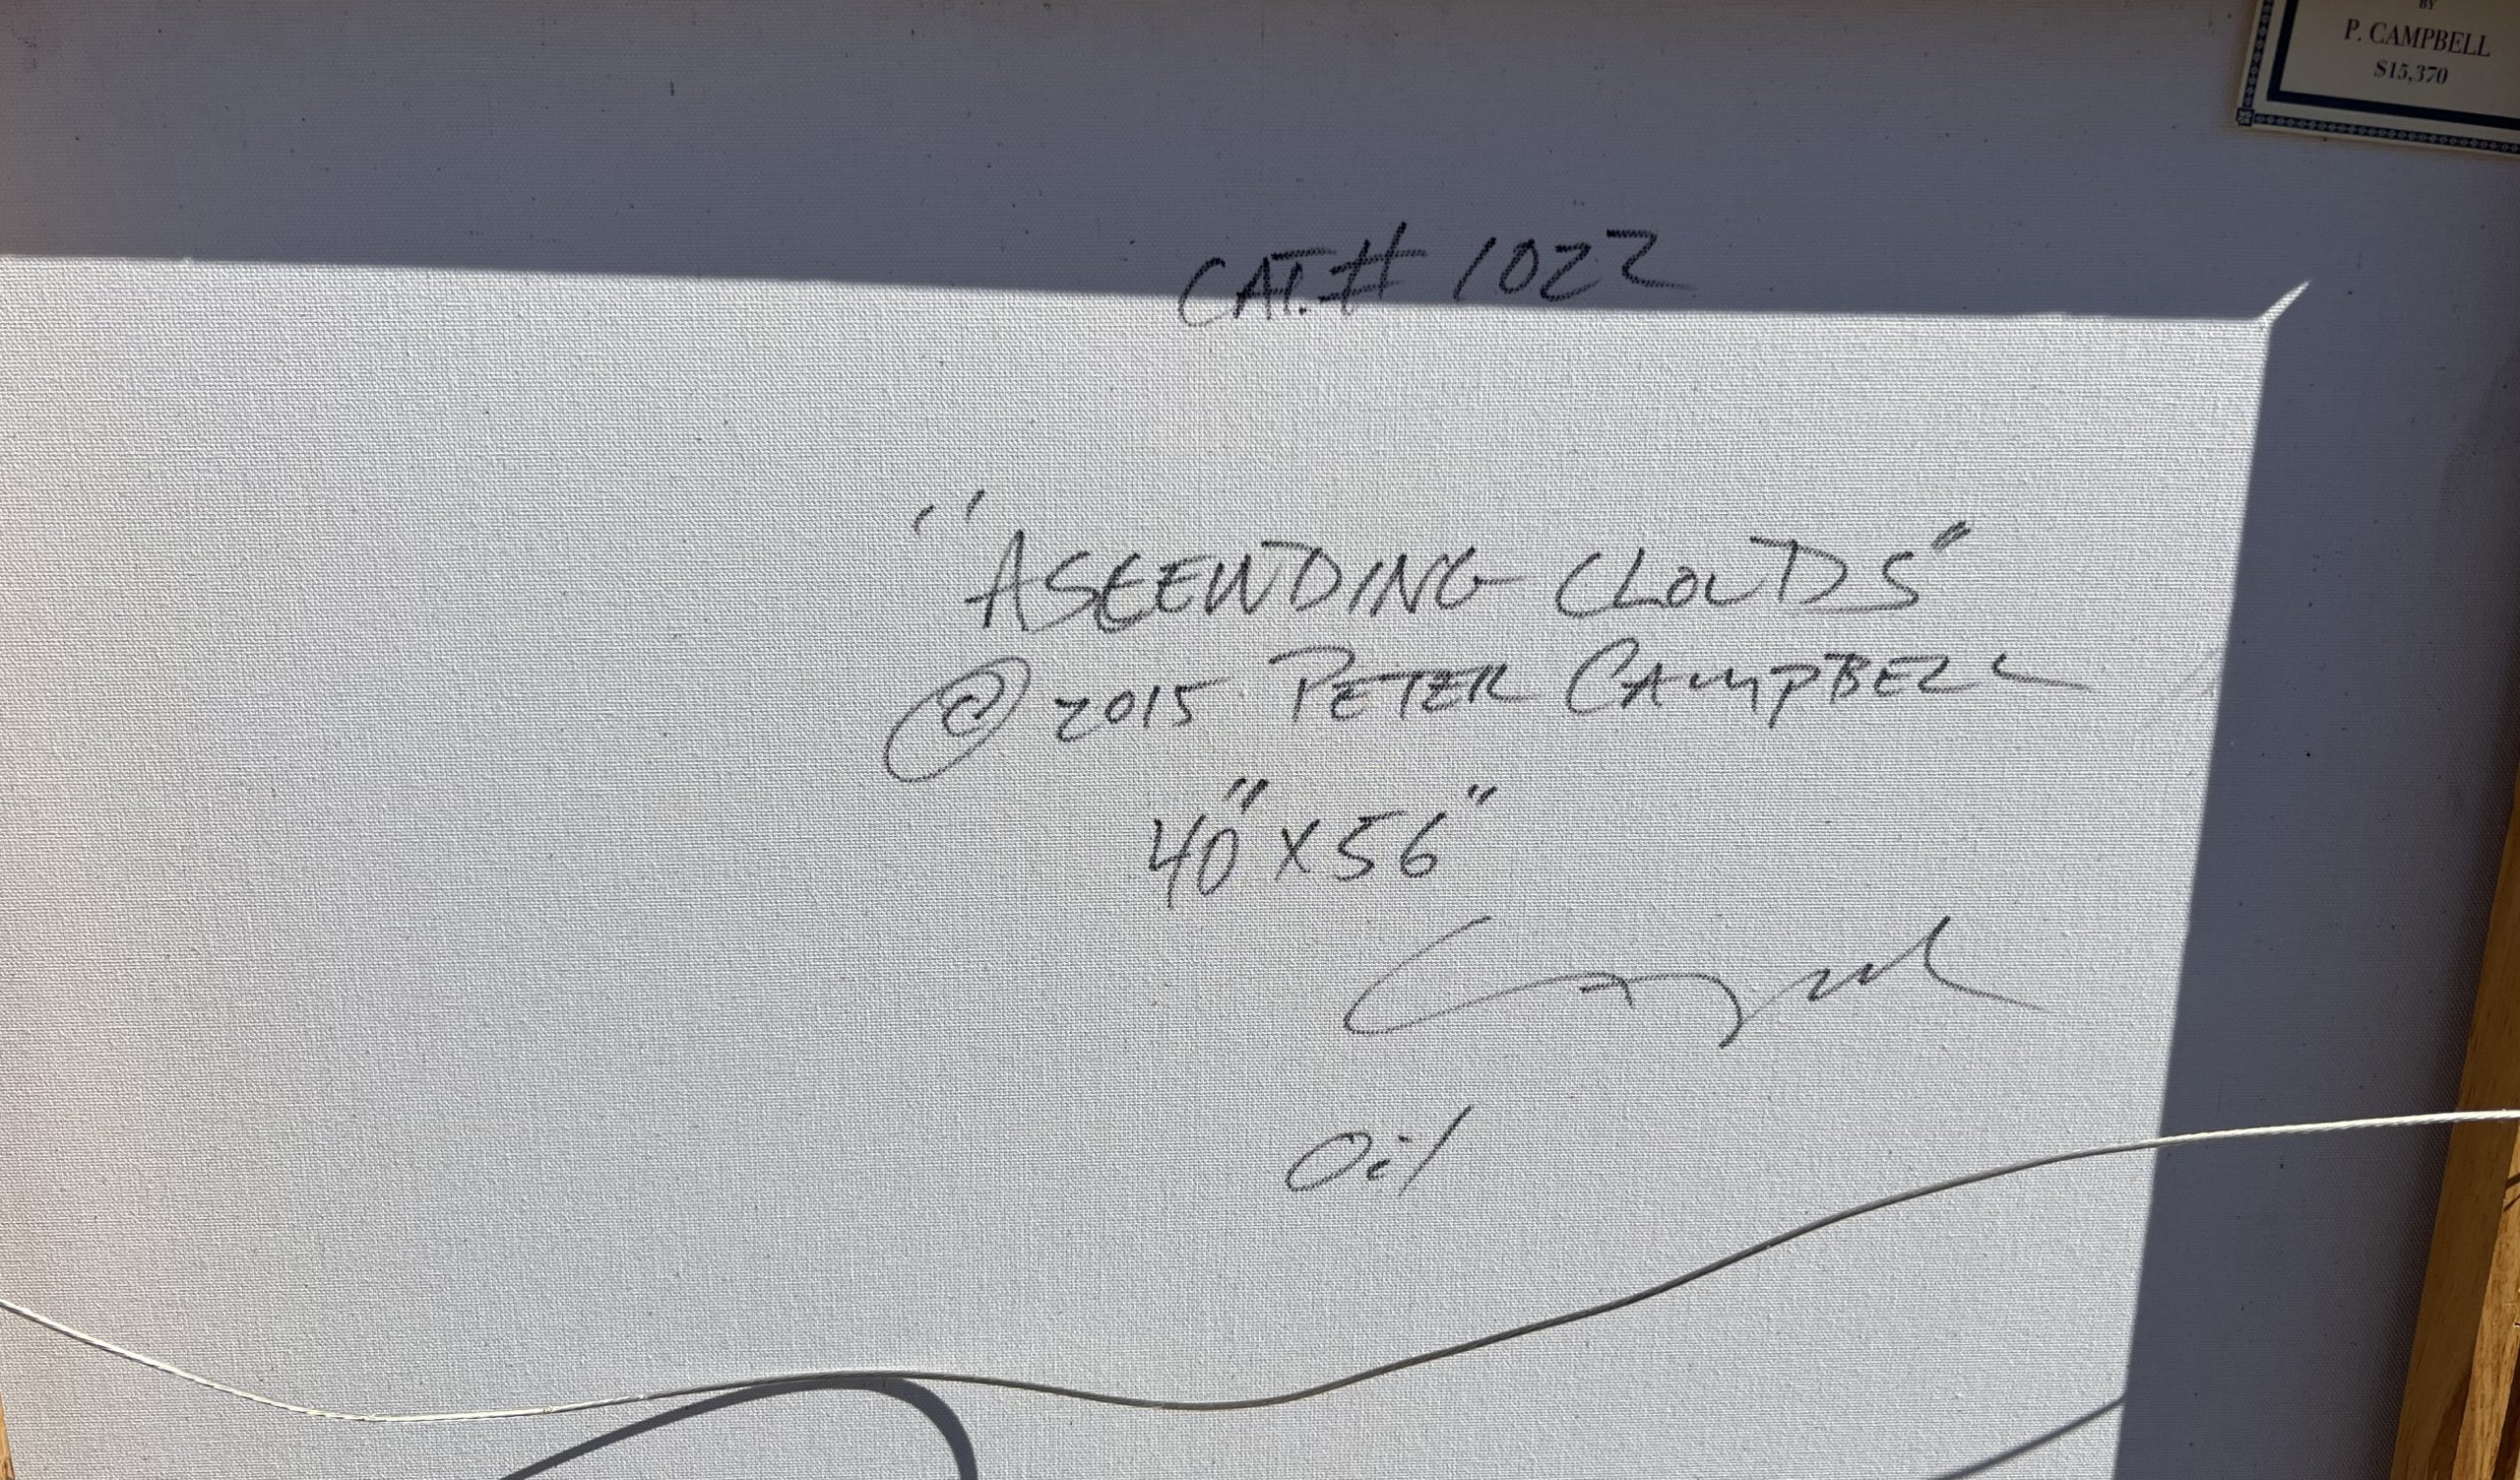 BY
P. CAMPBELL
$15,370
CAT.# 1022
"ASCENDING CLOUDS"
© 2015 PETER CAMPBELL
40" X 56"
Campbell
Oil